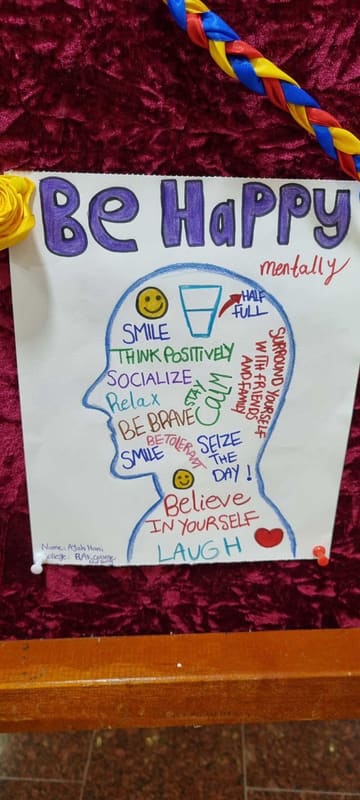 Be Happy
mentally
HALF
FULL
SMILE
THINK POSITIVELY
SOCIALIZE
Relax
STAY
CALM
SURROUND YOURSELF
WITH FRIENDS
AND FAMILY
BE BRAVE
BE TOLERANT
SMILE
SEIZE
THE
DAY!
Believe
IN YOURSELF
LAUGH
Name:
College: